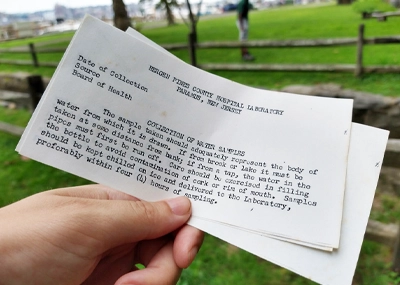 BERGEN PINES COUNTY HOSPITAL LABORATORY
PARAMUS, NEW JERSEY
Date of Collection
Source
Board of Health
COLLECTION OF WATER SAMPLES
The sample taken should adequately represent the body of
water from which it is drawn. If from brook or lake it must be
taken at some distance from bank; if from a tap, the water in the
pipes must first be run off. Care should be exercised in filling
the bottle to avoid contamination of cork or rim of mouth. Samples
should be kept chilled on ice and delivered to the Laboratory,
preferably within four (4) hours of sampling.